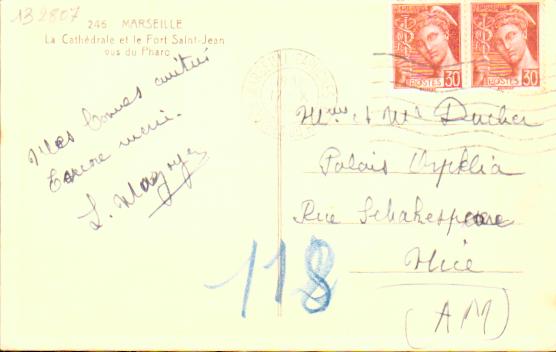 13 2807
246 MARSEILLE
La Cathédrale et le Fort Saint-Jean
vus du Pharo
Mes bonnes amitiés
Encore merci.
POSTES 30
POSTES 30
Mme et Mr Ducher
Palais Orphélia
Rue Schakespeare
Nice
(AM)
118